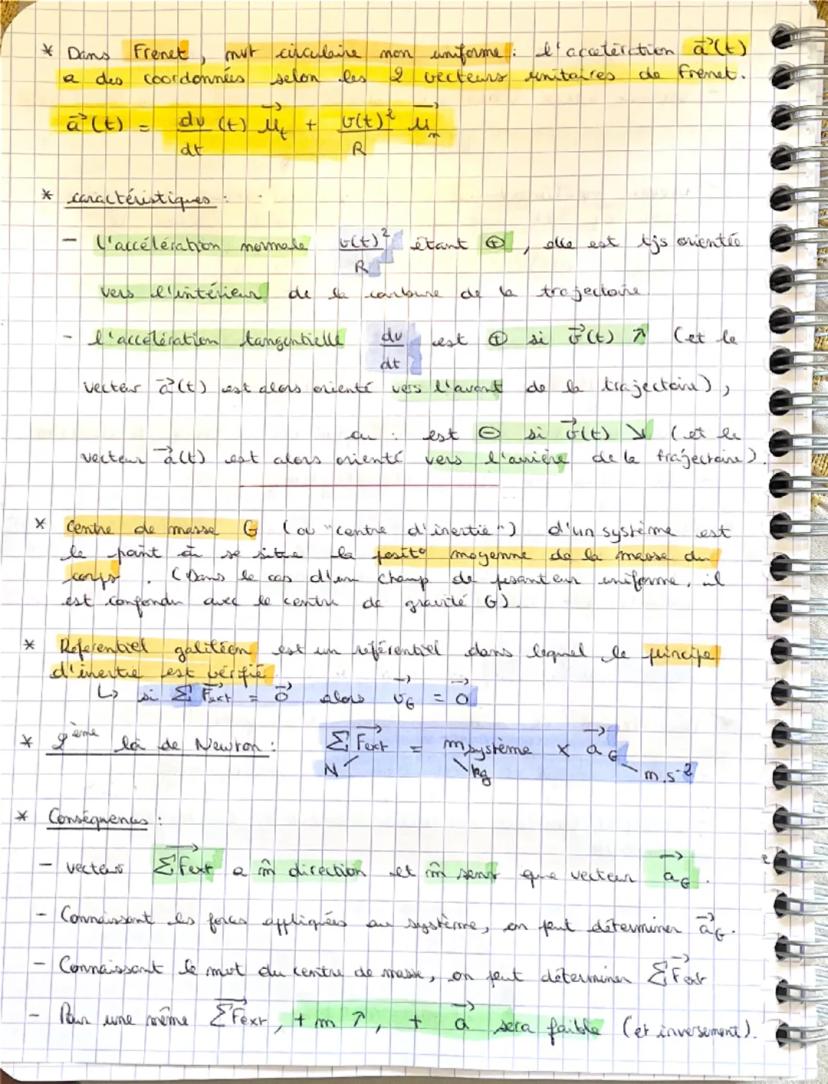 * Dans Frenet, mvt circulaire non uniforme : l'accélération a⃗(t)
a des coordonnées selon les 2 vecteurs unitaires de Frenet.
a⃗(t) = dv/dt (t) u⃗t + v(t)²/R u⃗n
* caractéristiques :
- l'accélération normale v(t)²/R étant ⊕, elle est tjs orientée
vers l'intérieur de la courbure de la trajectoire
- l'accélération tangentielle dv/dt est ⊕ si v⃗(t) ↗ (et le
vecteur a⃗(t) est alors orienté vers l'avant de la trajectoire),
ou : est ⊖ si v⃗(t) ↘ (et le
vecteur a⃗(t) est alors orienté vers l'arrière de la trajectoire).
* Centre de masse G (ou "centre d'inertie") d'un système est
le point où se situe la posit° moyenne de la masse du
corps. (Dans le cas d'un champ de pesanteur uniforme, il
est confondu avec le centre de gravité G).
* Referentiel galiléen est un référentiel dans lequel le principe
d'inertie est vérifié
↳ si Σ F⃗ext = 0⃗ alors v⃗G = 0⃗
* 2ème loi de Newton : Σ F⃗ext = m système × a⃗G
N kg m.s-2
* Conséquences :
- vecteur ΣF⃗ext a m̂ direction et m̂ sens que vecteur a⃗G.
- Connaissant les forces appliquées au système, on peut déterminer a⃗G.
- Connaissant le mvt du centre de masse, on peut déterminer ΣF⃗ext
- Pour une même ΣF⃗ext, + m ↗, + a⃗ sera faible (et inversement).